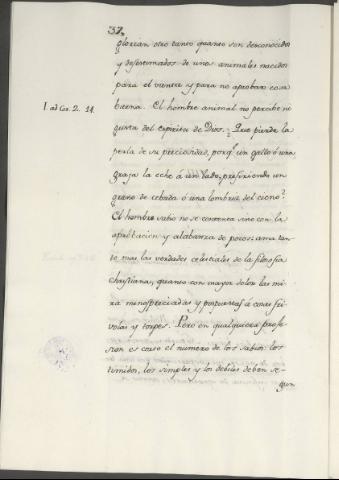 37.
glorian otro tanto quanto son desconocidos
y desestimados de unos animales nacidos
para el vientre y para no aprobar cosa
buena. El hombre animal no percibe ni
I. ad Cor. 2. 14.
gusta del espiritu de Dios. ¿Que pierde la
perla de su preciosidad, porq.e un gallo ó una
graja la eche á un lado, prefiriendo un
grano de cebada ó una lombriz del cieno?
El hombre sabio no se contenta sino con la
aprobacion y alabanza de pocos: ama tan-
to mas las verdades celestiales de la filosofia
Christiana, quanto con mayor dolor las mi-
ra menospreciadas y pospuestas á cosas fri-
volas y torpes. Pero en qualquiera profe-
sion es corto el numero de los sabios: los
timidos, los simples y los debiles deben se-
guir